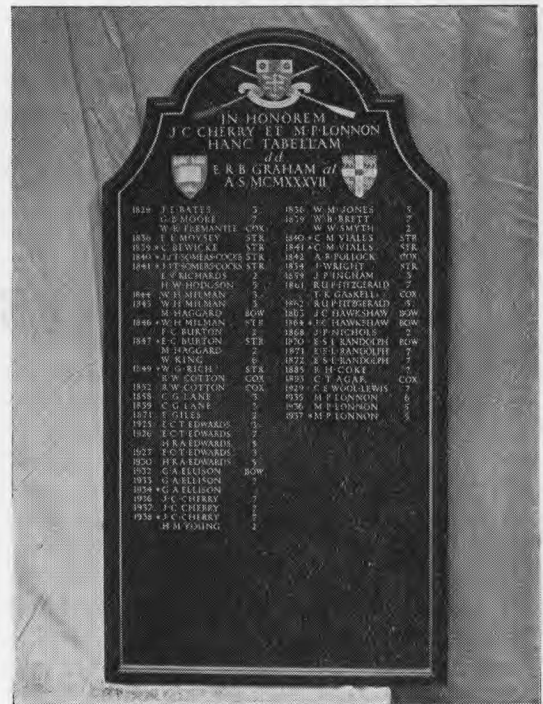 IN HONOREM
J·C·CHERRY ET M·P·LONNON
HANC TABELLAM
dd
E·R·B·GRAHAM al
A·S·MCMXXXVII
1829 J·E·BATES 3
G·B·MOORE 7
W·R·FREMANTLE COX
1836 F·L·MOYSEY STR
1839 * C·BEWICKE STR
1840 * J·J·T·SOMERS-COCKS STR
1841 * J·J·T·SOMERS-COCKS STR
E·V·RICHARDS 7
H·W·HODGSON 5
1844 W·H·MILMAN 3
1845 W·H·MILMAN 3
M·HAGGARD BOW
1846 * W·H·MILMAN STR
F·C·BURTON 2
1847 * E·C·BURTON STR
M·HAGGARD 2
W·KING 6
1849 * W·G·RICH STR
R·W·COTTON COX
1852 R·W·COTTON COX
1858 C·G·LANE 3
1859 C·G·LANE 3
1871 E·GILES 2
1925 E·C·T·EDWARDS 3
1926 E·C·T·EDWARDS 7
H·R·A·EDWARDS 5
1927 E·C·T·EDWARDS 3
1930 H·R·A·EDWARDS 5
1932 G·A·ELLISON BOW
1933 G·A·ELLISON 7
1934 * G·A·ELLISON
1936 J·C·CHERRY 7
1937 J·C·CHERRY 7
1938 * J·C·CHERRY 7
H·M·YOUNG 2
1836 W·M·JONES 5
1839 W·B·BRETT 7
W·W·SMYTH 2
1840 * C·M·VIALLS STR
1841 * C·M·VIALLS STR
1842 A·B·POLLOCK COX
1854 J·WRIGHT STR
1859 J·P·INGHAM 3
1861 R·U·P·FITZGERALD 7
T·K·GASKELL COX
1862 R·U·P·FITZGERALD
1863 J·C·HAWKSHAW BOW
1864 * J·C·HAWKSHAW BOW
1868 J·P·NICHOLS 2
1870 E·S·L·RANDOLPH BOW
1871 E·S·L·RANDOLPH 7
1872 E·S·L·RANDOLPH 7
1885 R·H·COKE 2
1893 C·T·AGAR COX
1929 C·E·WOOL-LEWIS 7
1935 M·P·LONNON 6
1936 M·P·LONNON
1937 * M·P·LONNON